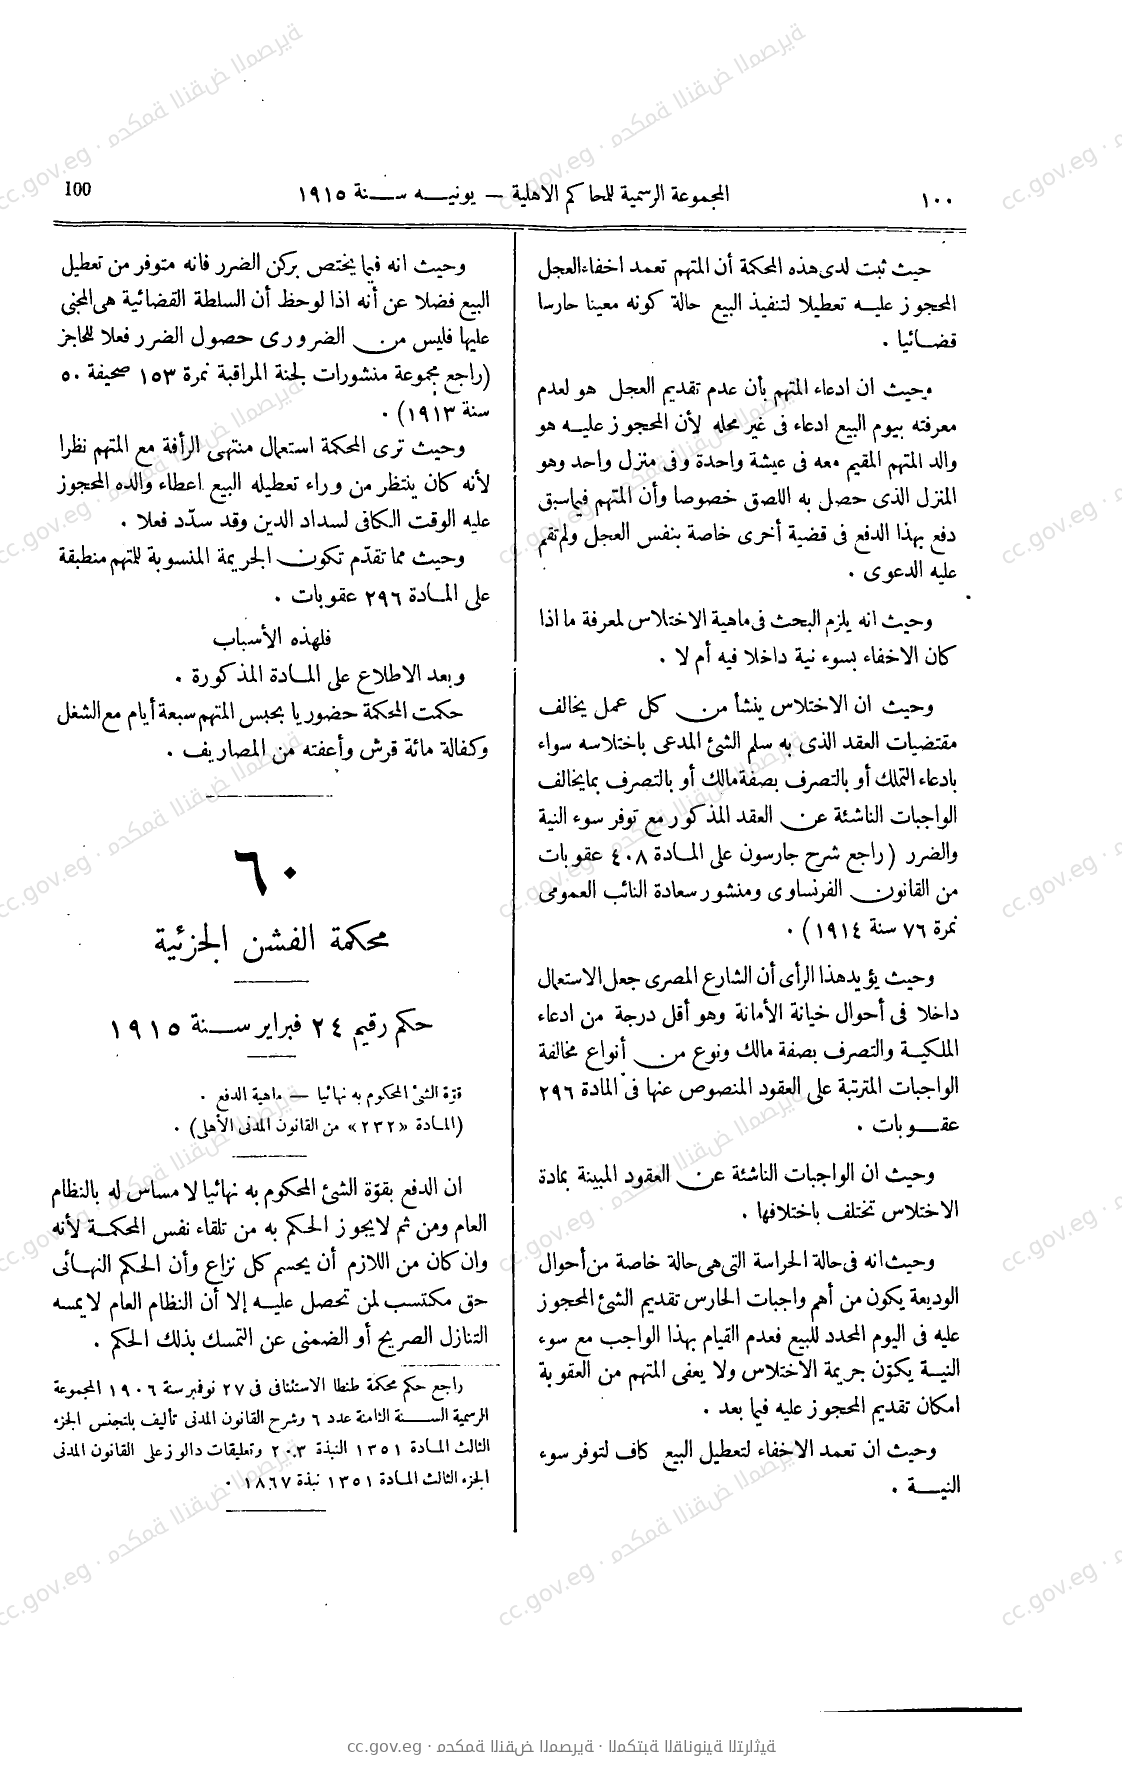 ١٠٠
المجموعة الرسمية للمحاكم الاهلية — يونيه سنة ١٩١٥
100
حيث ثبت لدى هذه المحكمة أن المتهم تعمد اخفاء العجل
المحجوز عليه تعطيلا لتنفيذ البيع حالة كونه معينا حارسا
قضائيا .
وحيث ان ادعاء المتهم بأن عدم تقديم العجل هو لعدم
معرفته بيوم البيع ادعاء فى غير محله لأن المحجوز عليه هو
والد المتهم المقيم معه فى عيشة واحدة وفى منزل واحد وهو
المنزل الذى حصل به اللصق خصوصا وأن المتهم فيما سبق
دفع بهذا الدفع فى قضية أخرى خاصة بنفس العجل ولم تقم
عليه الدعوى .
وحيث انه يلزم البحث فى ماهية الاختلاس لمعرفة ما اذا
كان الاخفاء بسوء نية داخلا فيه أم لا .
وحيث ان الاختلاس ينشأ من كل عمل يخالف
مقتضيات العقد الذى به سلم الشئ المدعى باختلاسه سواء
بادعاء التملك أو بالتصرف بصفة مالك أو بالتصرف بما يخالف
الواجبات الناشئة عن العقد المذكور مع توفر سوء النية
والضرر (راجع شرح جارسون على المادة ٤٠٨ عقوبات
من القانون الفرنساوى ومنشور سعادة النائب العمومى
نمرة ٧٦ سنة ١٩١٤) .
وحيث يؤيد هذا الرأى أن الشارع المصرى جعل الاستعمال
داخلا فى أحوال خيانة الأمانة وهو أقل درجة من ادعاء
الملكية والتصرف بصفة مالك ونوع من أنواع مخالفة
الواجبات المترتبة على العقود المنصوص عنها فى المادة ٢٩٦
عقوبات .
وحيث ان الواجبات الناشئة عن العقود المبينة بمادة
الاختلاس تختلف باختلافها .
وحيث انه فى حالة الحراسة التى هى حالة خاصة من أحوال
الوديعة يكون من أهم واجبات الحارس تقديم الشئ المحجوز
عليه فى اليوم المحدد للبيع فعدم القيام بهذا الواجب مع سوء
النية يكوّن جريمة الاختلاس ولا يعفى المتهم من العقوبة
امكان تقديم المحجوز عليه فيما بعد .
وحيث ان تعمد الاخفاء لتعطيل البيع كاف لتوفر سوء
النية .
وحيث انه فيما يختص بركن الضرر فانه متوفر من تعطيل
البيع فضلا عن أنه اذا لوحظ أن السلطة القضائية هى المجنى
عليها فليس من الضرورى حصول الضرر فعلا للحاجز
(راجع مجموعة منشورات لجنة المراقبة نمرة ١٥٣ صحيفة ٥٠
سنة ١٩١٣) .
وحيث ترى المحكمة استعمال منتهى الرأفة مع المتهم نظرا
لأنه كان ينتظر من وراء تعطيله البيع اعطاء والده المحجوز
عليه الوقت الكافى لسداد الدين وقد سدّد فعلا .
وحيث مما تقدّم تكون الجريمة المنسوبة للمتهم منطبقة
على المادة ٢٩٦ عقوبات .
فلهذه الأسباب
وبعد الاطلاع على المادة المذكورة .
حكمت المحكمة حضوريا بحبس المتهم سبعة أيام مع الشغل
وكفالة مائة قرش وأعفته من المصاريف .
٦٠
محكمة الفشن الجزئية
حكم رقيم ٢٤ فبراير سنة ١٩١٥
قوّة الشئ المحكوم به نهائيا — ماهية الدفع .
(المادة «٢٣٢» من القانون المدنى الأهلى) .
ان الدفع بقوّة الشئ المحكوم به نهائيا لا مساس له بالنظام
العام ومن ثم لا يجوز الحكم به من تلقاء نفس المحكمة لأنه
وان كان من اللازم أن يحسم كل نزاع وأن الحكم النهائى
حق مكتسب لمن تحصل عليه إلا أن النظام العام لا يمسه
التنازل الصريح أو الضمنى عن التمسك بذلك الحكم .
راجع حكم محكمة طنطا الاستئنافى فى ٢٧ نوفمبر سنة ١٩٠٦ المجموعة
الرسمية السنة الثامنة عدد ٦ وشرح القانون المدنى تأليف بلتجنس الجزء
الثالث المادة ١٣٥١ النبذة ٢٠٣ وتعليقات دالوز على القانون المدنى
الجزء الثالث المادة ١٣٥١ نبذة ١٨٦٧ .
cc.gov.eg · محكمة النقض المصرية · المكتبة القانونية التراثية